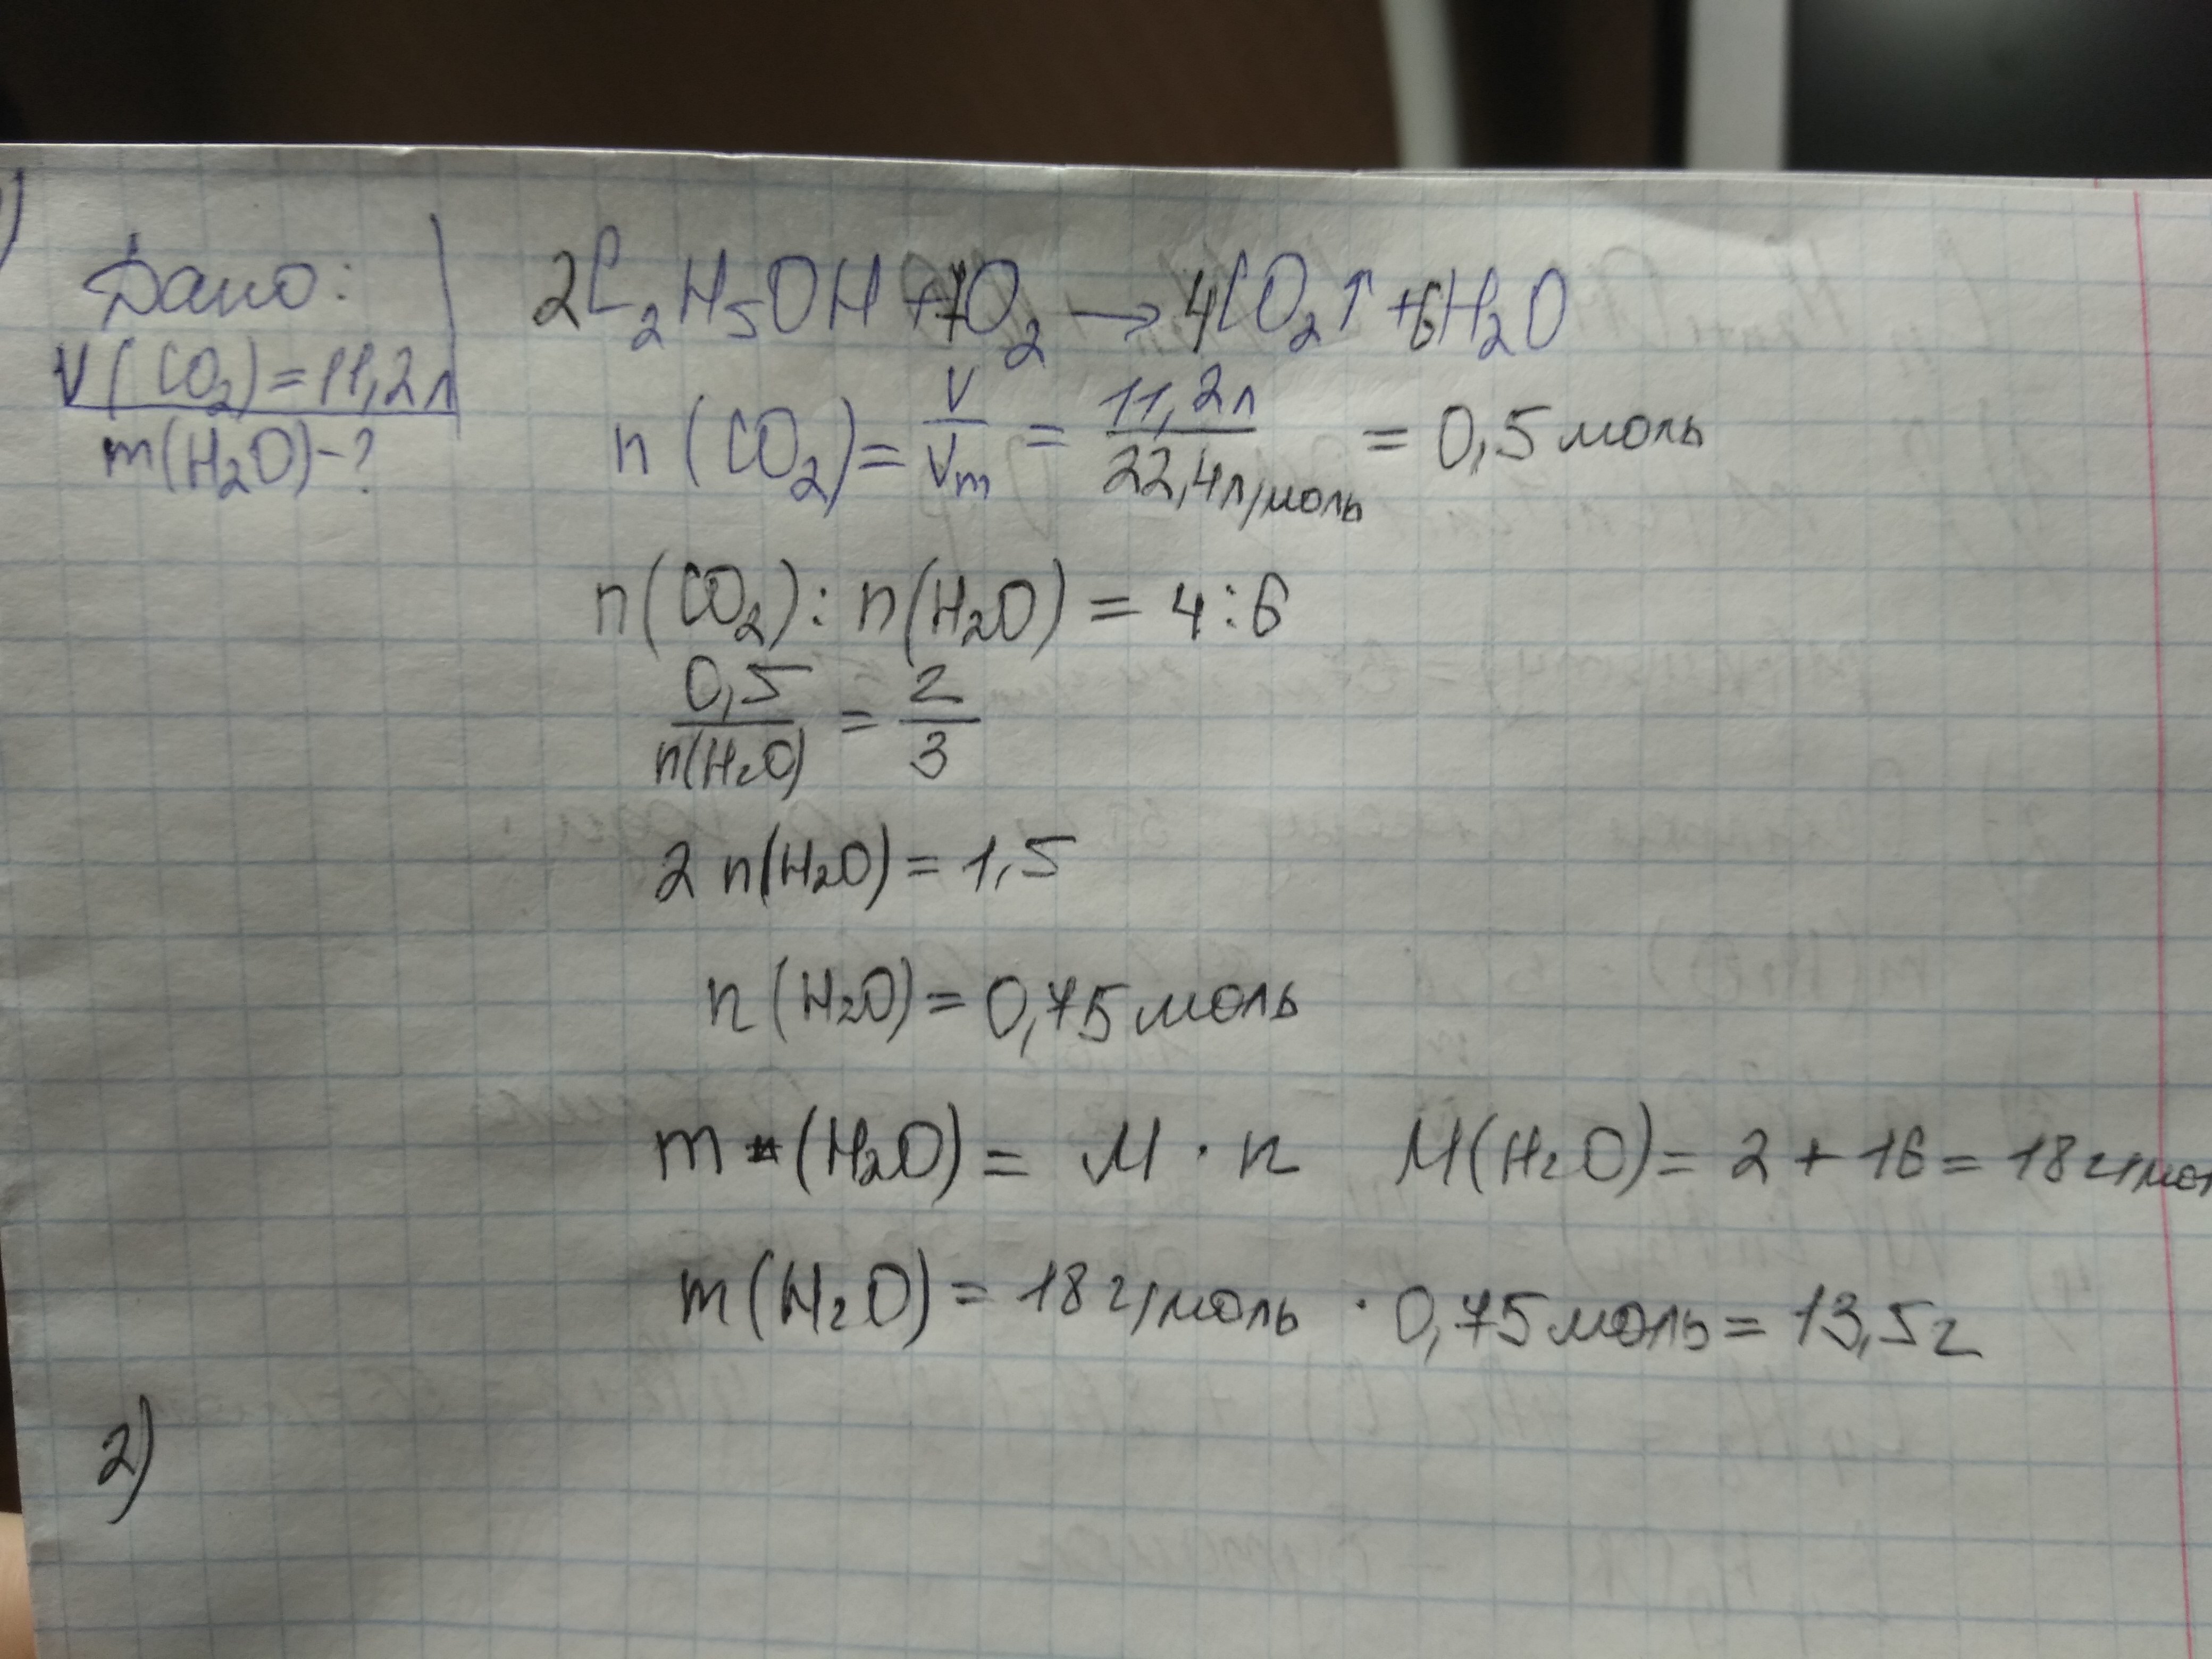 )
Дано:
V(CO₂)=11,2л
m(H₂O)-?
2C₂H₅OH+7O₂→4CO₂↑+6H₂O
n(CO₂)=V/Vm=11,2л/22,4л/моль=0,5моль
n(CO₂):n(H₂O)=4:6
0,5/n(H₂O)=2/3
2n(H₂O)=1,5
n(H₂O)=0,75моль
m(H₂O)=M·n M(H₂O)=2+16=18г/мол
m(H₂O)=18г/моль·0,75моль=13,5г
2)